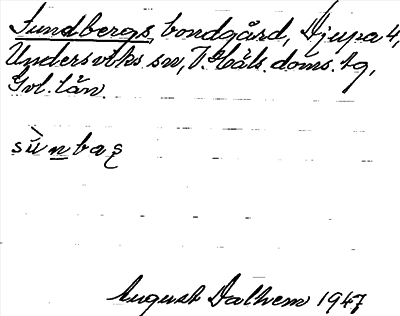 Sundbergs, bondgård, Djupa 4,
Undersviks sn, V. Häls. doms. tg,
Gvl. län.
sù̀nbaʂ
August Dalhem 1947